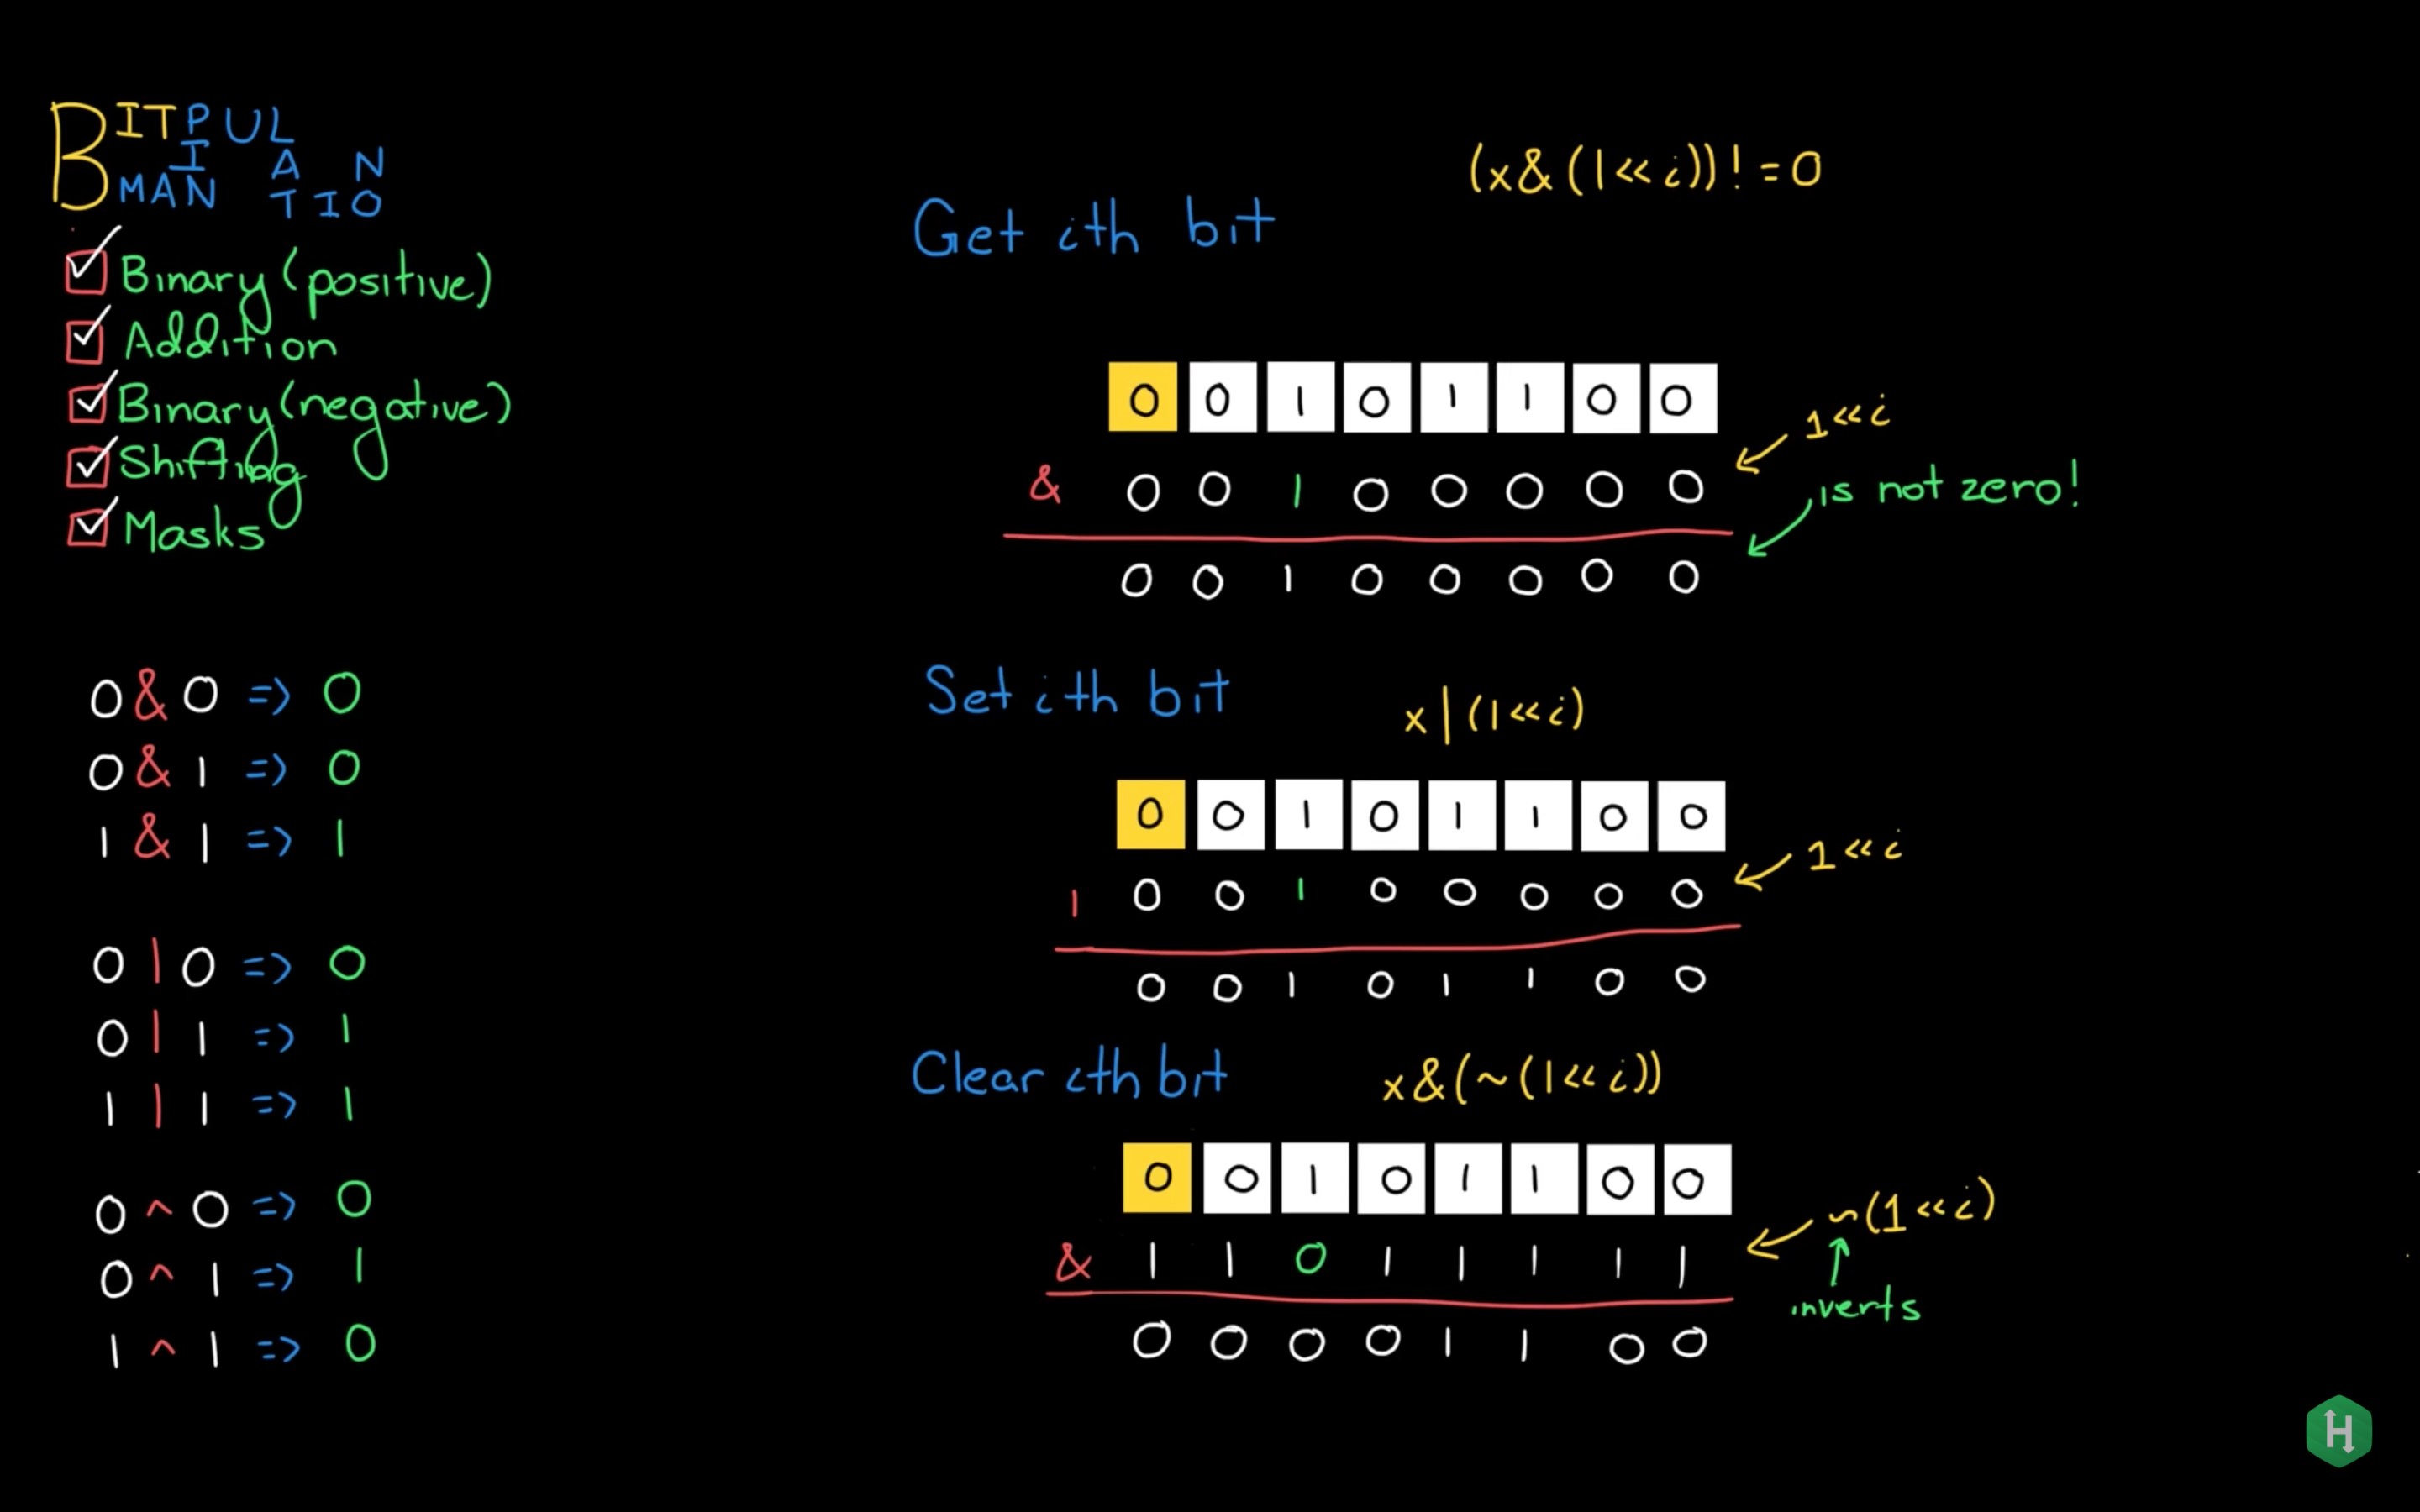 BIT MANIPULATION
Binary (positive)
Addition
Binary (negative)
Shifting
Masks
0 & 0 => 0
0 & 1 => 0
1 & 1 => 1
0 | 0 => 0
0 | 1 => 1
1 | 1 => 1
0 ^ 0 => 0
0 ^ 1 => 1
1 ^ 1 => 0
Get ith bit
(x&(1<<i))!=0
0 0 1 0 1 1 0 0
1<<i
& 0 0 1 0 0 0 0 0
is not zero!
0 0 1 0 0 0 0 0
Set ith bit
x|(1<<i)
0 0 1 0 1 1 0 0
1<<i
| 0 0 1 0 0 0 0 0
0 0 1 0 1 1 0 0
Clear ith bit
x&(~(1<<i))
0 0 1 0 1 1 0 0
~(1<<i)
& 1 1 0 1 1 1 1 1
inverts
0 0 0 0 1 1 0 0
H